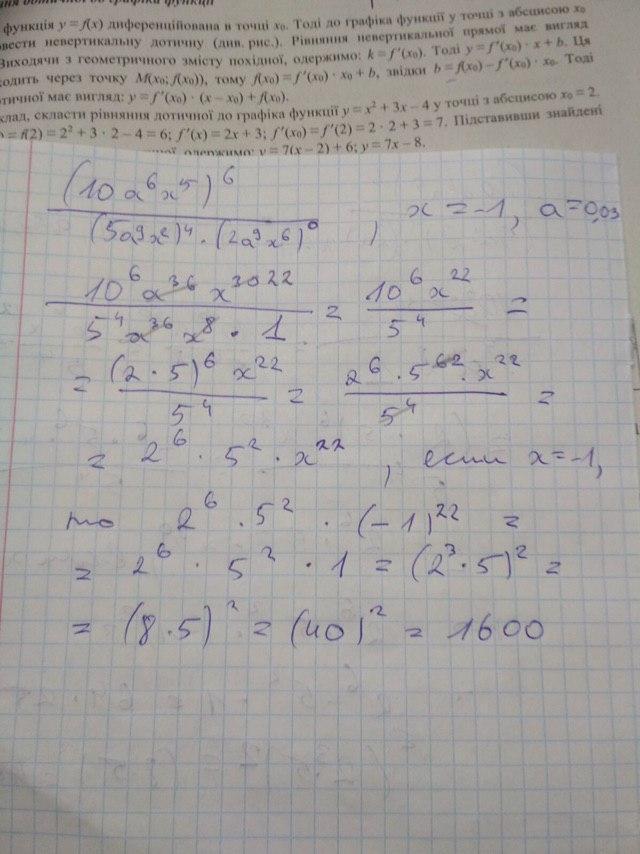 функція y = f(x) диференційована в точці x₀. Тоді до графіка функції у точці з абсцисою x₀
вести невертикальну дотичну (див. рис.). Рівняння невертикальної прямої має вигляд
Виходячи з геометричного змісту похідної, одержимо: k = f′(x₀). Тоді y = f′(x₀) · x + b. Ця
через точку M(x₀; f(x₀)), тому f(x₀) = f′(x₀) · x₀ + b, звідки b = f(x₀) – f′(x₀) · x₀. Тоді
має вигляд: y = f′(x₀) · (x – x₀) + f(x₀).
скласти рівняння дотичної до графіка функції y = x² + 3x – 4 у точці з абсцисою x₀ = 2.
= f(2) = 2² + 3 · 2 – 4 = 6; f′(x) = 2x + 3; f′(x₀) = f′(2) = 2 · 2 + 3 = 7. Підставивши знайдені
одержимо: y = 7(x – 2) + 6; y = 7x – 8.
(10a⁶x⁵)⁶
(5a⁹x²)⁴ · (2a⁹x⁶)⁰ , x = -1, a = 0,03
10⁶a³⁶x³⁰ ²² / 5⁴a³⁶x⁸ · 1 = 10⁶x²² / 5⁴ =
= (2 · 5)⁶ x²² / 5⁴ = 2⁶ · 5⁶ ² · x²² / 5⁴ =
= 2⁶ · 5² · x²² , если x = -1,
то 2⁶ · 5² · (-1)²² =
= 2⁶ · 5² · 1 = (2³ · 5)² =
= (8 · 5)² = (40)² = 1600